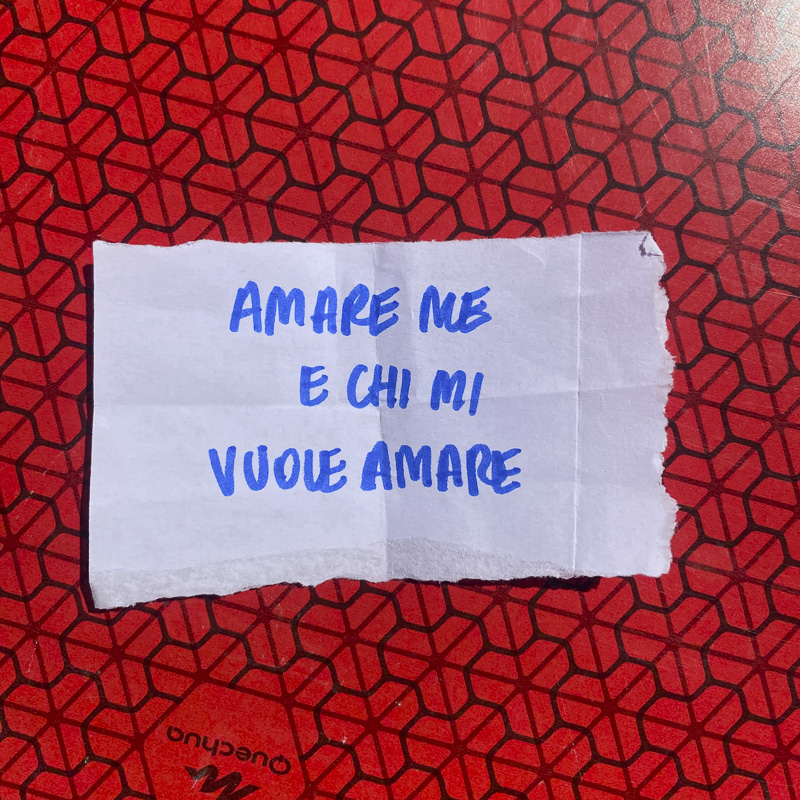 AMARE ME
E CHI MI
VUOLE AMARE
Quechua